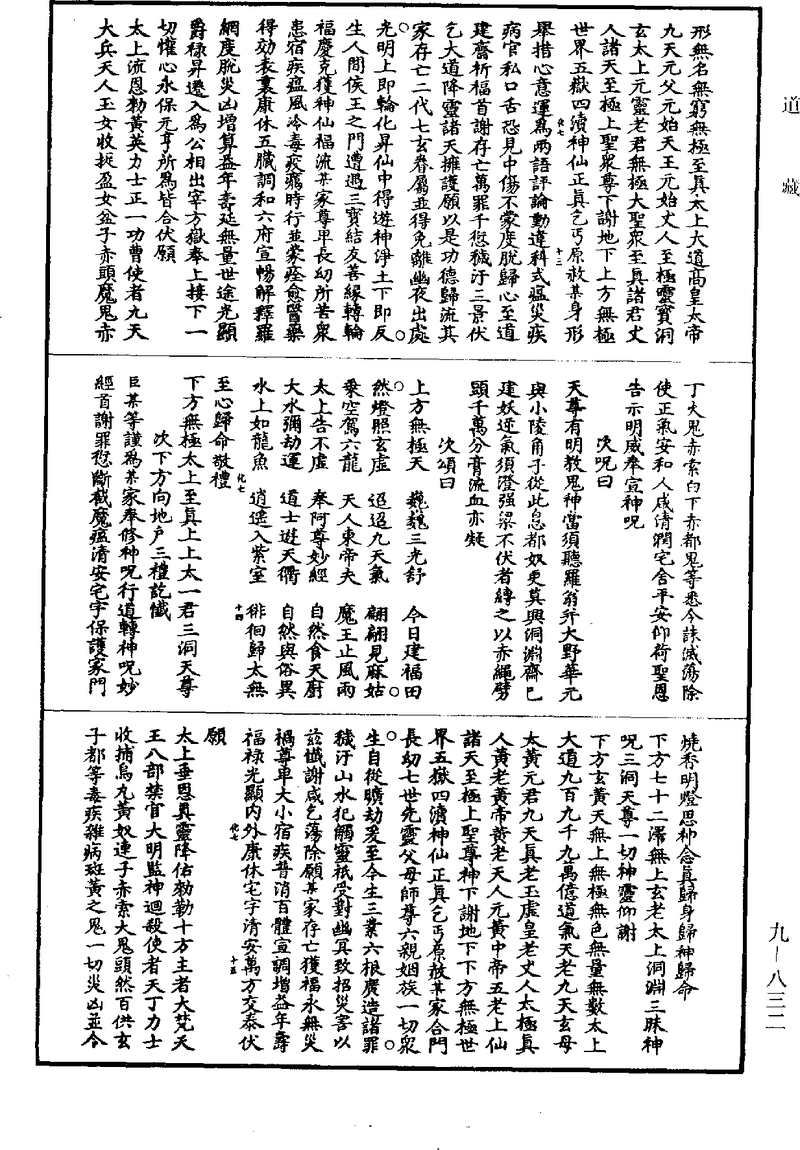 道藏
形無名無窮無極至真太上大道高皇太帝
九天元父元始天王元始丈人至極靈寶洞
玄太上元靈老君無極大聖衆至真諸君丈
人諸天至極上聖衆尊下謝地下上方無極
世界五嶽四瀆神仙正真乞丐原赦某身形
舉措心意運爲兩語評論動違科式瘟災疾
化七
十三
病官私口舌恐見中傷不蒙度脫歸心至道
建齋祈福首謝存亡萬罪千愆穢汙三景伏
乞大道降靈諸天擁護願以是功德歸流某
家存亡二代七玄眷屬並得免離幽夜出處
光明上即輪化昇仙中得遊神淨土下即反
生人間侯王之門遭遇三寶結友善緣轉輪
福慶克獲神仙福流某家尊卑長幼所苦衆
患宿疾瘟風冷毒疫癘時行並蒙痊愈醫藥
得効表裏康休五臟調和六府宣暢解釋羅
網度脫災凶增算益年壽延無量世途光顯
爵祿昇遷入爲公相出宰方嶽奉上接下一
切懽心永保元亨所爲皆合伏願
太上流恩勑黃英力士正一功曹使者九天
大兵天人玉女收捉盈女盆子赤頭魔鬼赤
丁大鬼赤索白下赤都鬼等悉令誅滅蕩除
使正氣安和人咸清潤宅舍平安仰荷聖恩
告示明威奉宣神呪
次呪曰
天尊有明教鬼神當須聽羅翁斧大野華元
與小陵角子從此息都奴更莫興洞淵齋已
建妖逆氣須澄强梁不伏者縛之以赤繩劈
頭千萬分膏流血亦凝
次頌曰
上方無極天　巍巍三光舒　今日建福田
然燈照玄虛　迢迢九天氣　翩翩見麻姑
乘空駕六龍　天人東帝夫　魔王止風雨
太上告不虛　奉阿尊妙經　自然食天廚
大水彌劫運　道士遊天衢　自然與俗異
水上如龍魚　逍遙入紫室　徘徊歸太無
化七
十四
至心歸命敬禮
下方無極太上至真上上太一君三洞天尊
次下方向地户三禮訖懺
臣某等謹爲某家奉修神呪行道轉神呪妙
經首謝罪愆斷截魔瘟清安宅宇保護家門
燒香明燈思神念真歸身歸神歸命
下方七十二滯無上玄老太上洞淵三昧神
呪三洞天尊一切神靈仰謝
下方玄黃天無上無極無色無量無數太上
大道九百九千九萬億道氣天老九天玄母
太黃元君九天真老玉虛皇老丈人太極真
人黃老黃帝黃老天人元黃中帝五老上仙
諸天至極上聖尊神下謝地下下方無極世
界五嶽四瀆神仙正真乞丐原赦某家合門
長幼七世先靈父母師尊六親姻族一切衆
生自從曠劫爰至今生三業六根廣造諸罪
穢汙山水犯觸靈祇受對幽冥致招災害以
茲懺謝咸乞蕩除願某家存亡獲福永無災
禍尊卑大小宿疾普消百體宣調增益年壽
福祿光顯内外康休宅宇清安萬方交泰伏
化七
十五
願
太上垂恩真靈降佑勑勒十方主者大梵天
王八部禁官大明監神迴殺使者天丁力士
收捕烏九黃奴連子赤索大鬼頭然百供玄
子都等毒疾雜病斑黃之鬼一切災凶並令
九—八三二